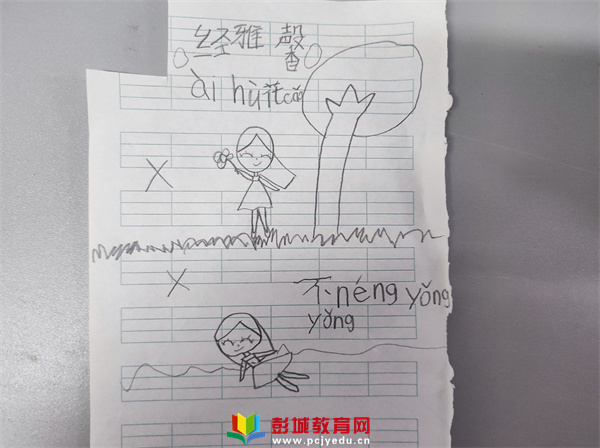 经雅馨
ài hù花cǎo
不néng yǒng
yǒng
彭城教育网
www.pcjyedu.cn